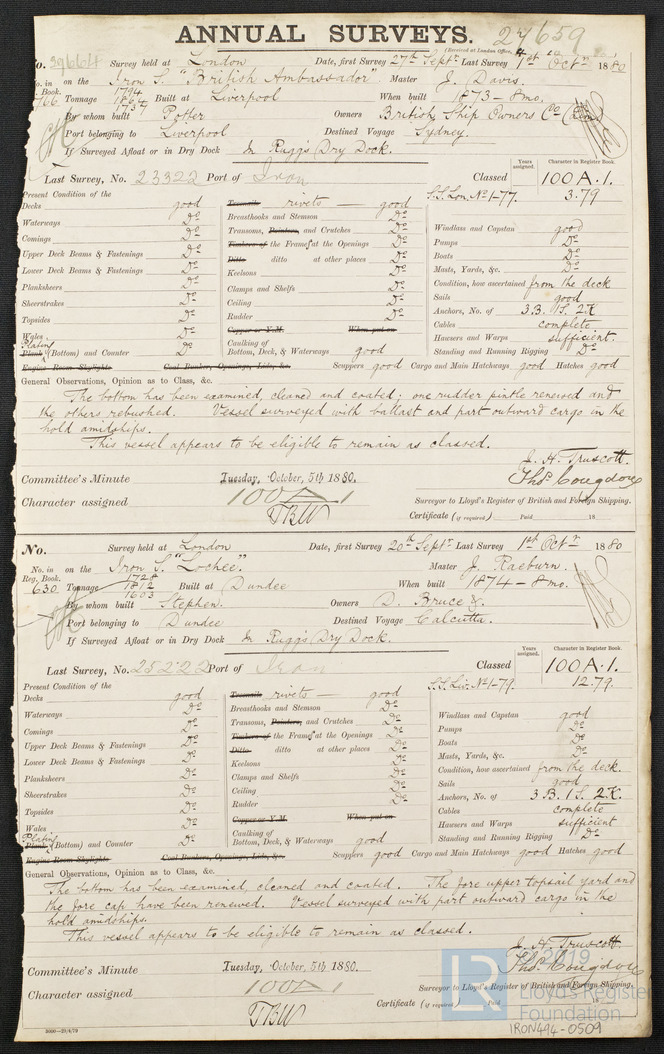 ANNUAL SURVEYS. 27659
(Received at London Office,
No. 39664 Survey held at London Date, first Survey 27th Septr Last Survey 1st Octr 1880
No. in on the Iron S. "British Ambassador" Master J. Davis.
Book.
166. Tonnage 1794 Built at Liverpool When built 1873 - 8mo.
By whom built Potter Owners British Ship Owners Co
Port belonging to Liverpool Destined Voyage Sydney.
If Surveyed Afloat or in Dry Dock In Rugg's Dry Dock.
Last Survey, No. 23322 Port of Iron Classed Years assigned. Character in Register Book. 100 A.1.
S.S. Lon. No 1-77. 3.79
Present Condition of the
Decks good
Waterways Do
Comings Do
Upper Deck Beams & Fastenings Do
Lower Deck Beams & Fastenings Do
Planksheers Do
Sheerstrakes Do
Topsides Do
Wales Do
Plating
Plank (Bottom) and Counter Do
Engine Room Skylights Coal Bunkers, Openings, Lids, &c.
Treenails rivets good
Breasthooks and Stemson Do
Transoms, Pointers, and Crutches Do
Timbers of the Frame at the Openings Do
Ditto ditto at other places Do
Keelsons Do
Clamps and Shelfs Do
Ceiling Do
Rudder Do
Copper or Y.M. When put on
Caulking of
Bottom, Deck, & Waterways good
Windlass and Capstan good
Pumps Do
Boats Do
Masts, Yards, &c. Do
Condition, how ascertained from the deck
Sails good
Anchors, No. of 3 B. 1 S. 2 K
Cables complete
Hawsers and Warps sufficient.
Standing and Running Rigging Do
Scuppers good Cargo and Main Hatchways good Hatches good
General Observations, Opinion as to Class, &c.
The bottom has been examined, cleaned and coated; one rudder pintle renewed and
the others rebushed. Vessel surveyed with ballast and part outward cargo in the
hold amidships.
This vessel appears to be eligible to remain as classed.
J. H. Truscott.
Committee's Minute Tuesday, October, 5th 1880. Thos. Congdon
Character assigned 100 A 1 Surveyor to Lloyd's Register of British and Foreign Shipping.
TBW Certificate (if required) Paid 18
No. Survey held at London Date, first Survey 20th Septr Last Survey 1st Octr 1880
No. in on the Iron S. "Lochee." Master J. Raeburn.
Reg. Book. 1728
630. Tonnage 1812 Built at Dundee When built 1874 - 8mo.
1603
By whom built Stephen. Owners D. Bruce &c.
Port belonging to Dundee Destined Voyage Calcutta.
If Surveyed Afloat or in Dry Dock In Rugg's Dry Dock.
Last Survey, No. 25222 Port of Iron Classed Years assigned. Character in Register Book. 100 A.1.
S.S. Liv. No 1-79. 12.79
Present Condition of the
Decks good
Waterways Do
Comings Do
Upper Deck Beams & Fastenings Do
Lower Deck Beams & Fastenings Do
Planksheers Do
Sheerstrakes Do
Topsides Do
Wales Do
Plating
Plank (Bottom) and Counter Do
Engine Room Skylights Coal Bunkers, Openings, Lids, &c.
Treenails rivets good
Breasthooks and Stemson Do
Transoms, Pointers, and Crutches Do
Timbers of the Frame at the Openings Do
Ditto ditto at other places Do
Keelsons Do
Clamps and Shelfs Do
Ceiling Do
Rudder Do
Copper or Y.M. When put on
Caulking of
Bottom, Deck, & Waterways good
Windlass and Capstan good
Pumps Do
Boats Do
Masts, Yards, &c. Do
Condition, how ascertained from the deck.
Sails good
Anchors, No. of 3 B. 1 S. 2 K.
Cables complete
Hawsers and Warps sufficient
Standing and Running Rigging Do
Scuppers good Cargo and Main Hatchways good Hatches good
General Observations, Opinion as to Class, &c.
The bottom has been examined, cleaned and coated. The fore upper topsail yard and
the fore cap have been renewed. Vessel surveyed with part outward cargo in the
hold amidships.
This vessel appears to be eligible to remain as classed.
J. H. Truscott.
Committee's Minute Tuesday, October, 5th 1880. Thos. Congdon
Character assigned 100 A 1 Surveyor to Lloyd's Register of British and Foreign Shipping.
TBW Certificate (if required) Paid 18
3000—23/4/79
LR
© 2019
Lloyd's Register
Foundation
IRON494-0509